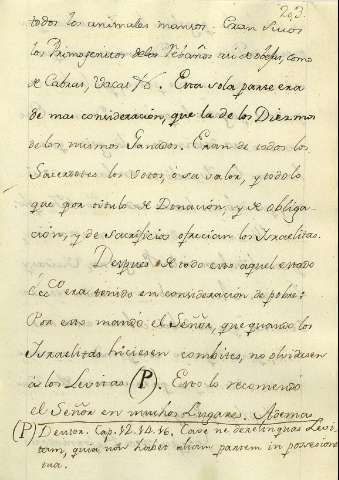 203.
todos los animales mansos. Eran suios
los Primogenitos de los Rebaños asi de Obejas, como
de Cabras, Vacas &c. Esta sola parte era
de mas consideración, que la de los Diezmos
de los mismos Ganados. Eran de todos los
Sacerdotes los Votos, ó su valor, y todo lo
que por titulo de Donación, y de obliga-
ción, y de sacrificios ofrecian los Israelitas.
Despues de todo esto aquel estado
ecco era tenido en consideración de pobre:
Por esto mandó el Señor, que quando los
Israelitas hiciesen combites, no olvidasen
á los Levitas (P). Esto lo recomendó
el Señor en muchos Lugares. Ademas
(P) Deutor. Cap. 12. 14. 16. Cave ne derelinquas Levi-
tam, quia non habet aliam partem in possesione
tua.